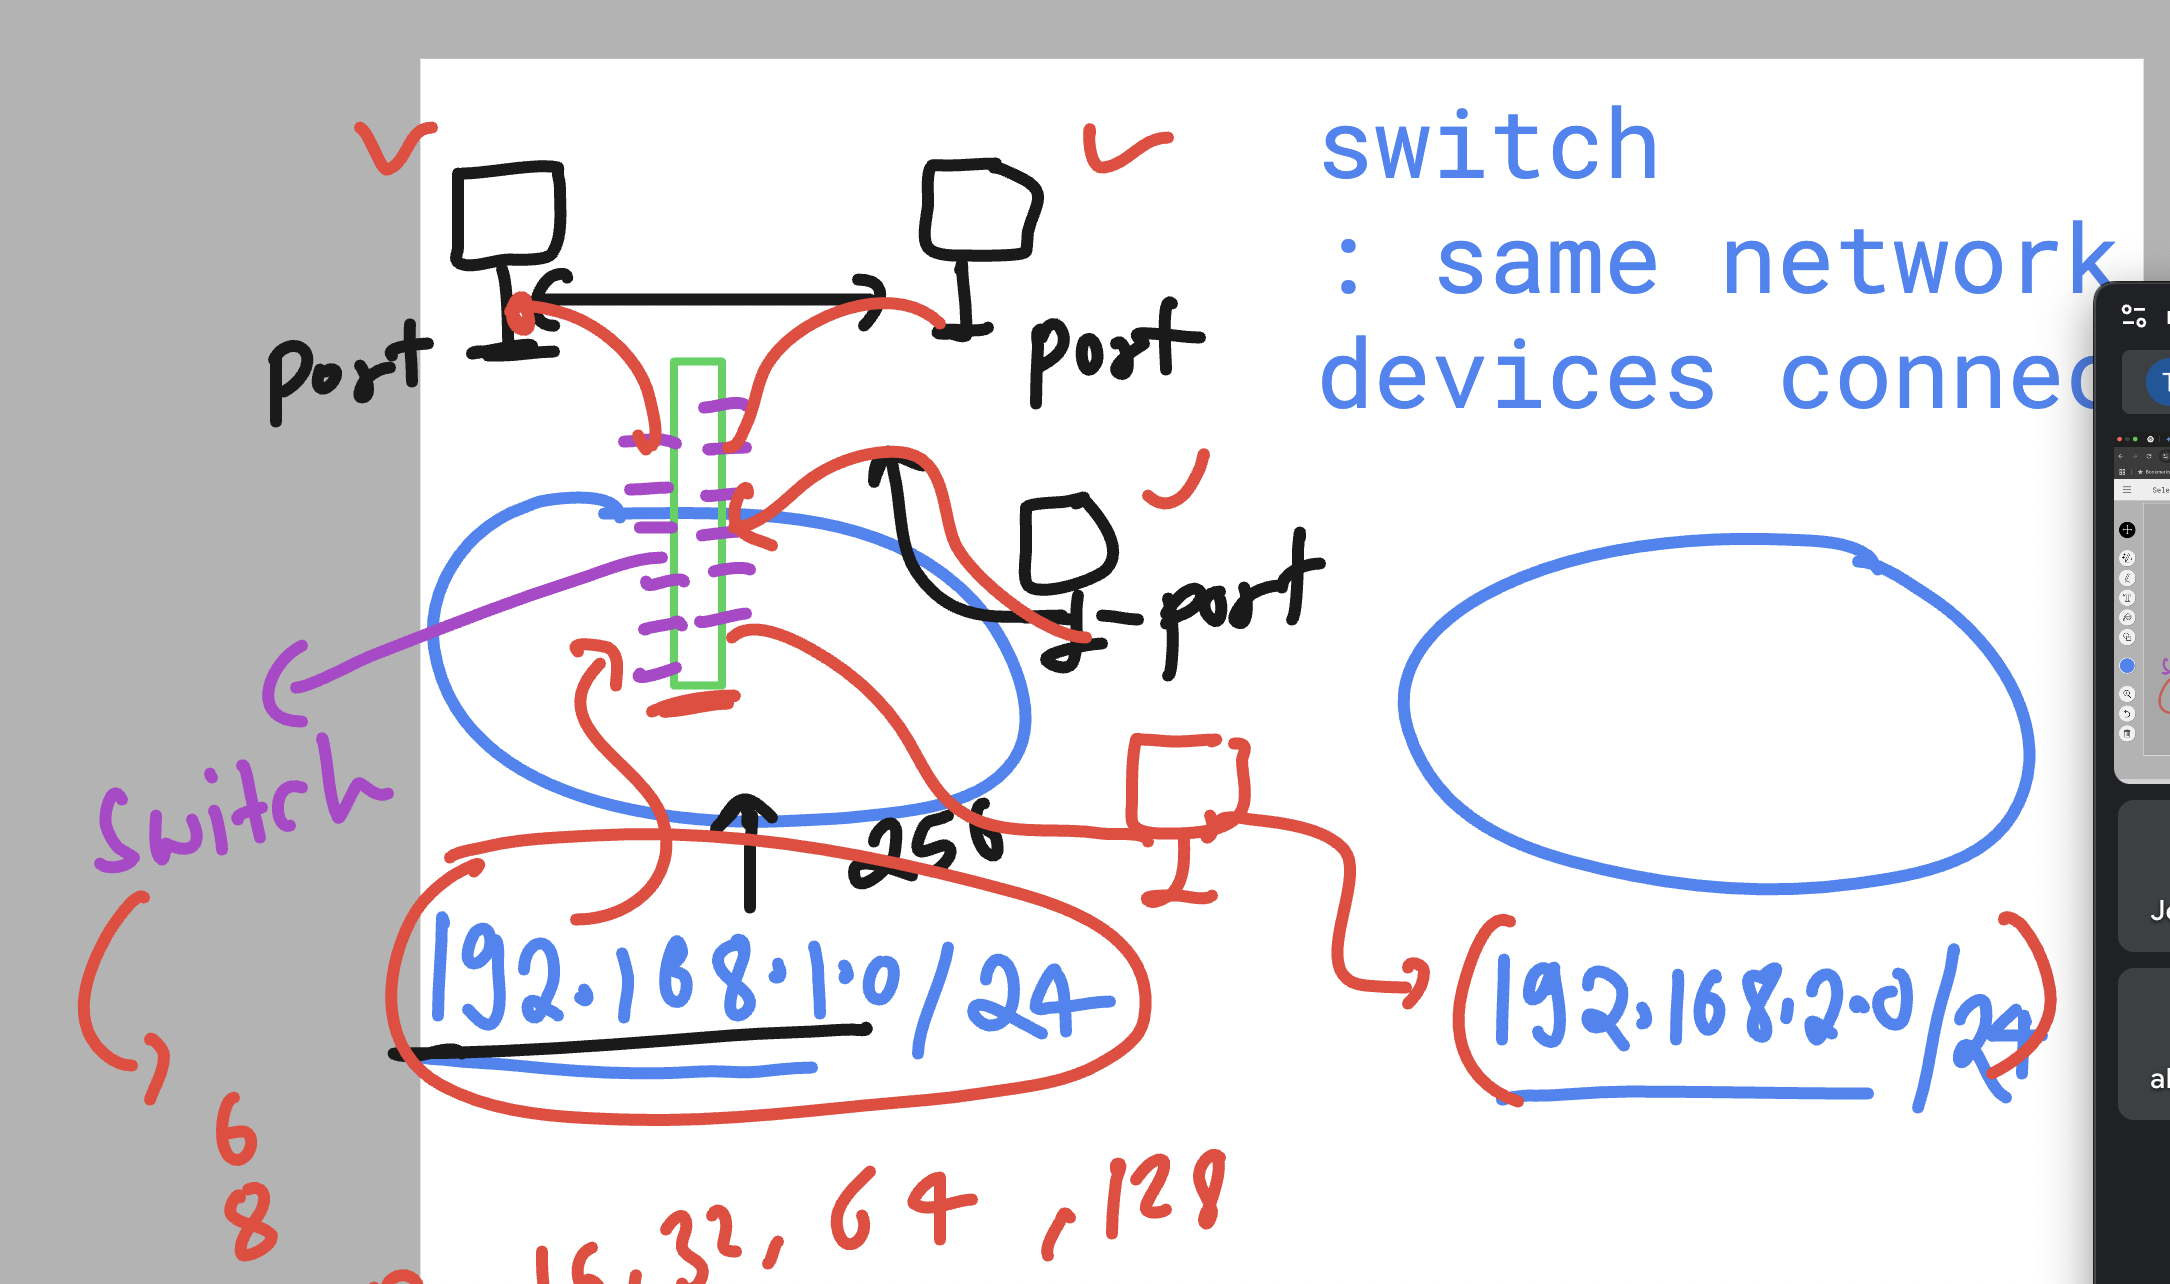 switch
: same network
devices connec
port
port
port
switch
256
192.168.1.0/24
192.168.2.0/24
6
8
16, 32, 64, 128